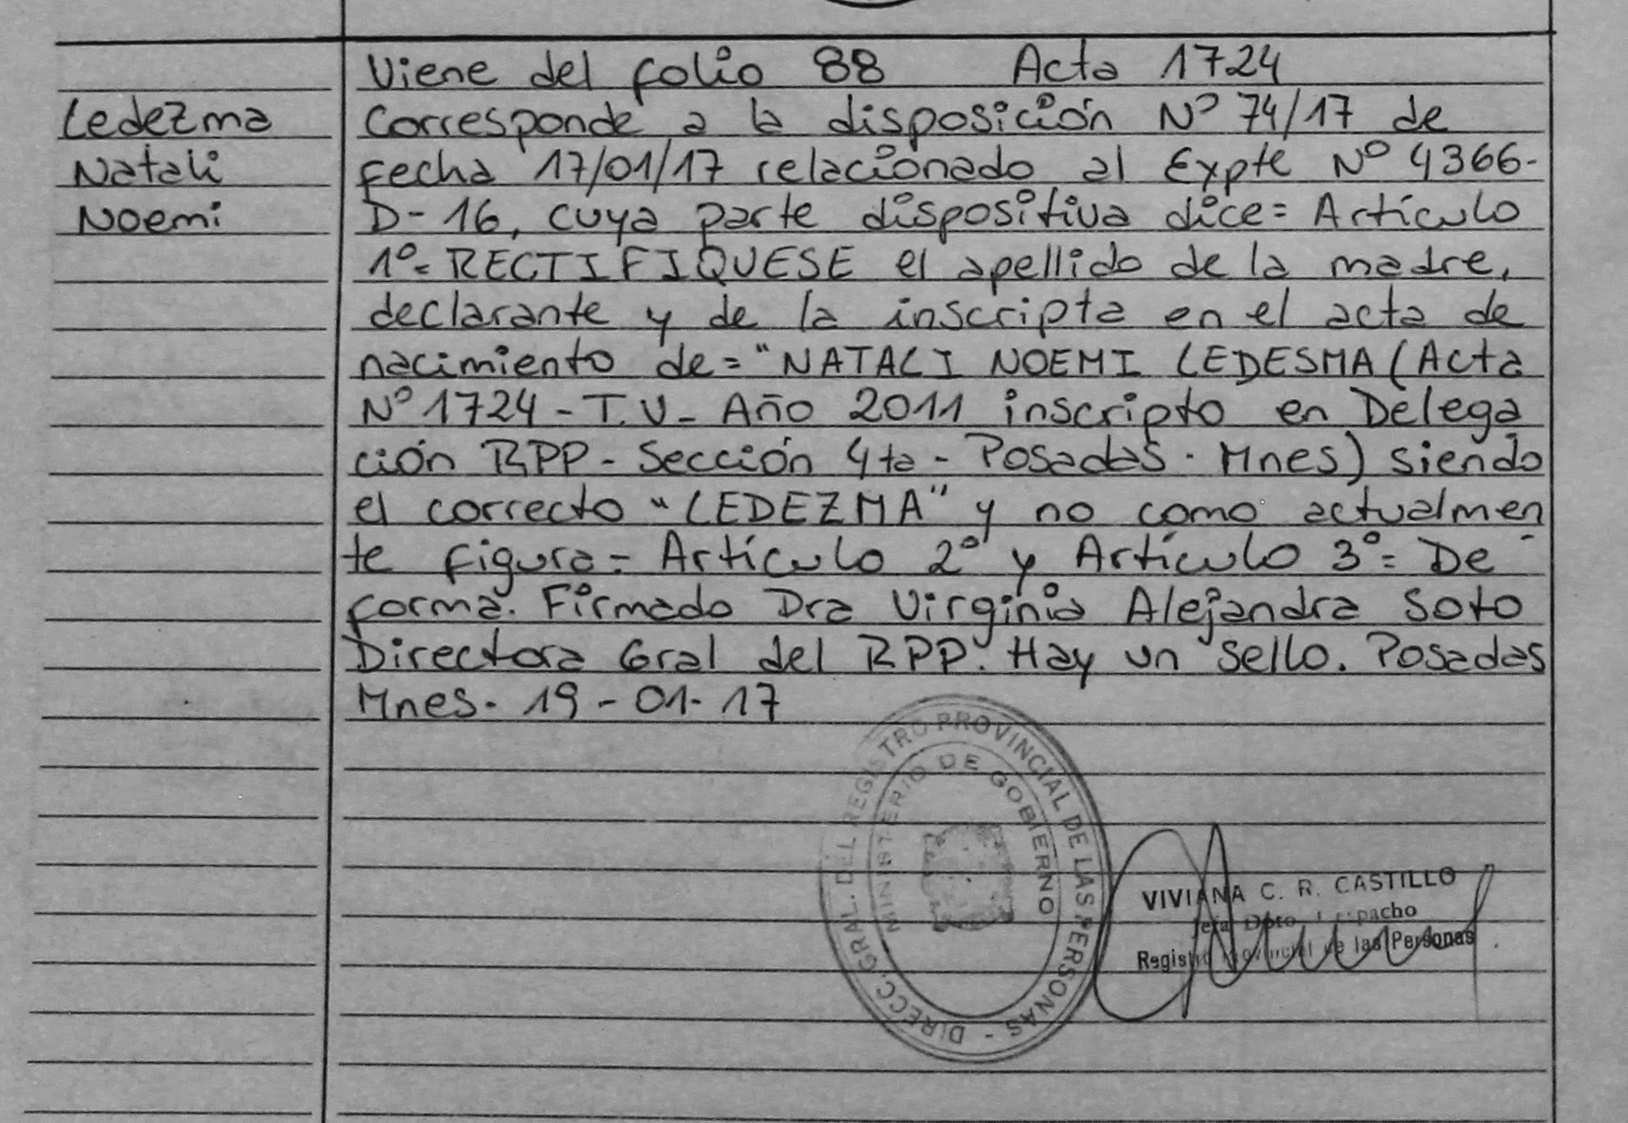 Viene del folio 88 Acta 1724
Ledezma
Natali
Noemi
Corresponde a la disposición Nº 74/17 de
fecha 17/01/17 relacionado al Expte Nº 4366-
D-16, cuya parte dispositiva dice= Artículo
1º= RECTIFIQUESE el apellido de la madre,
declarante y de la inscripta en el acta de
nacimiento de= "NATALI NOEMI LEDESMA (Acta
Nº 1724 - T.V - Año 2011 inscripto en Delega
ción RPP - Sección 4ta - Posadas - Mnes) siendo
el correcto "LEDEZMA" y no como actualmen
te figura= Artículo 2º y Artículo 3º= De
forma. Firmado Dra Virginia Alejandra Soto
Directora Gral del RPP. Hay un sello. Posadas
Mnes. 19-01-17
DIRECC. GRAL. DEL REGISTRO PROVINCIAL DE LAS PERSONAS -
MINISTERIO DE GOBIERNO
VIVIANA C. R. CASTILLO
Jefa Dpto
Registro Provincial de las Personas